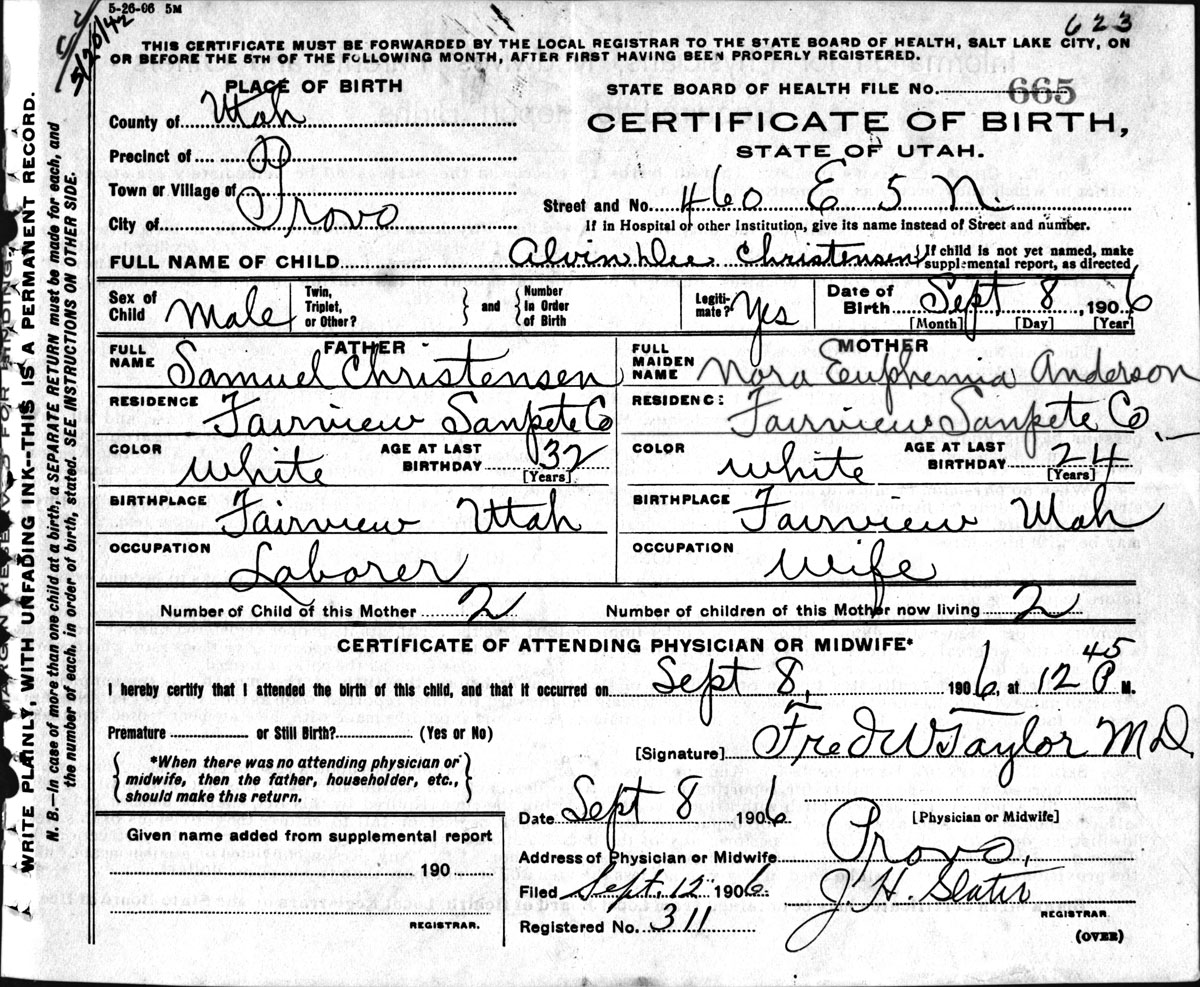 5-26-06 5M
5/20/42
623
THIS CERTIFICATE MUST BE FORWARDED BY THE LOCAL REGISTRAR TO THE STATE BOARD OF HEALTH, SALT LAKE CITY, ON
OR BEFORE THE 5TH OF THE FOLLOWING MONTH, AFTER FIRST HAVING BEEN PROPERLY REGISTERED.
PLACE OF BIRTH
STATE BOARD OF HEALTH FILE No. 665
County of Utah
CERTIFICATE OF BIRTH,
Precinct of
STATE OF UTAH.
Town or Village of
Street and No. 460 E 5 N.
City of Provo
If in Hospital or other Institution, give its name instead of Street and number.
FULL NAME OF CHILD Alvin Dee Christensen {If child is not yet named, make supplemental report, as directed
Sex of Child Male
Twin, Triplet, or Other? } and { Number in Order of Birth
Legiti-mate? Yes
Date of Birth Sept 8, 1906
[Month] [Day] [Year]
FATHER
FULL NAME Samuel Christensen
RESIDENCE Fairview Sanpete Co
COLOR White AGE AT LAST BIRTHDAY 32 [Years]
BIRTHPLACE Fairview Utah
OCCUPATION Laborer
MOTHER
FULL MAIDEN NAME Nora Euphemia Anderson
RESIDENCE Fairview Sanpete Co.
COLOR White AGE AT LAST BIRTHDAY 24 [Years]
BIRTHPLACE Fairview Utah
OCCUPATION Wife
Number of Child of this Mother 2 Number of children of this Mother now living 2
CERTIFICATE OF ATTENDING PHYSICIAN OR MIDWIFE*
I hereby certify that I attended the birth of this child, and that it occurred on Sept 8, 1906, at 12 45 P M.
Premature or Still Birth? (Yes or No)
[Signature] Fred W Taylor M.D.
{*When there was no attending physician or
midwife, then the father, householder, etc.,
should make this return.}
Date Sept 8 1906
[Physician or Midwife]
Given name added from supplemental report
190
REGISTRAR.
Address of Physician or Midwife Provo.
Filed Sept. 12 1906. J. H. Slater
REGISTRAR
Registered No. 311
(OVER)
MARGIN RESERVED FOR BINDING
WRITE PLAINLY, WITH UNFADING INK—THIS IS A PERMANENT RECORD.
N. B.—In case of more than one child at a birth, a SEPARATE RETURN must be made for each, and
the number of each, in order of birth, stated. SEE INSTRUCTIONS ON OTHER SIDE.